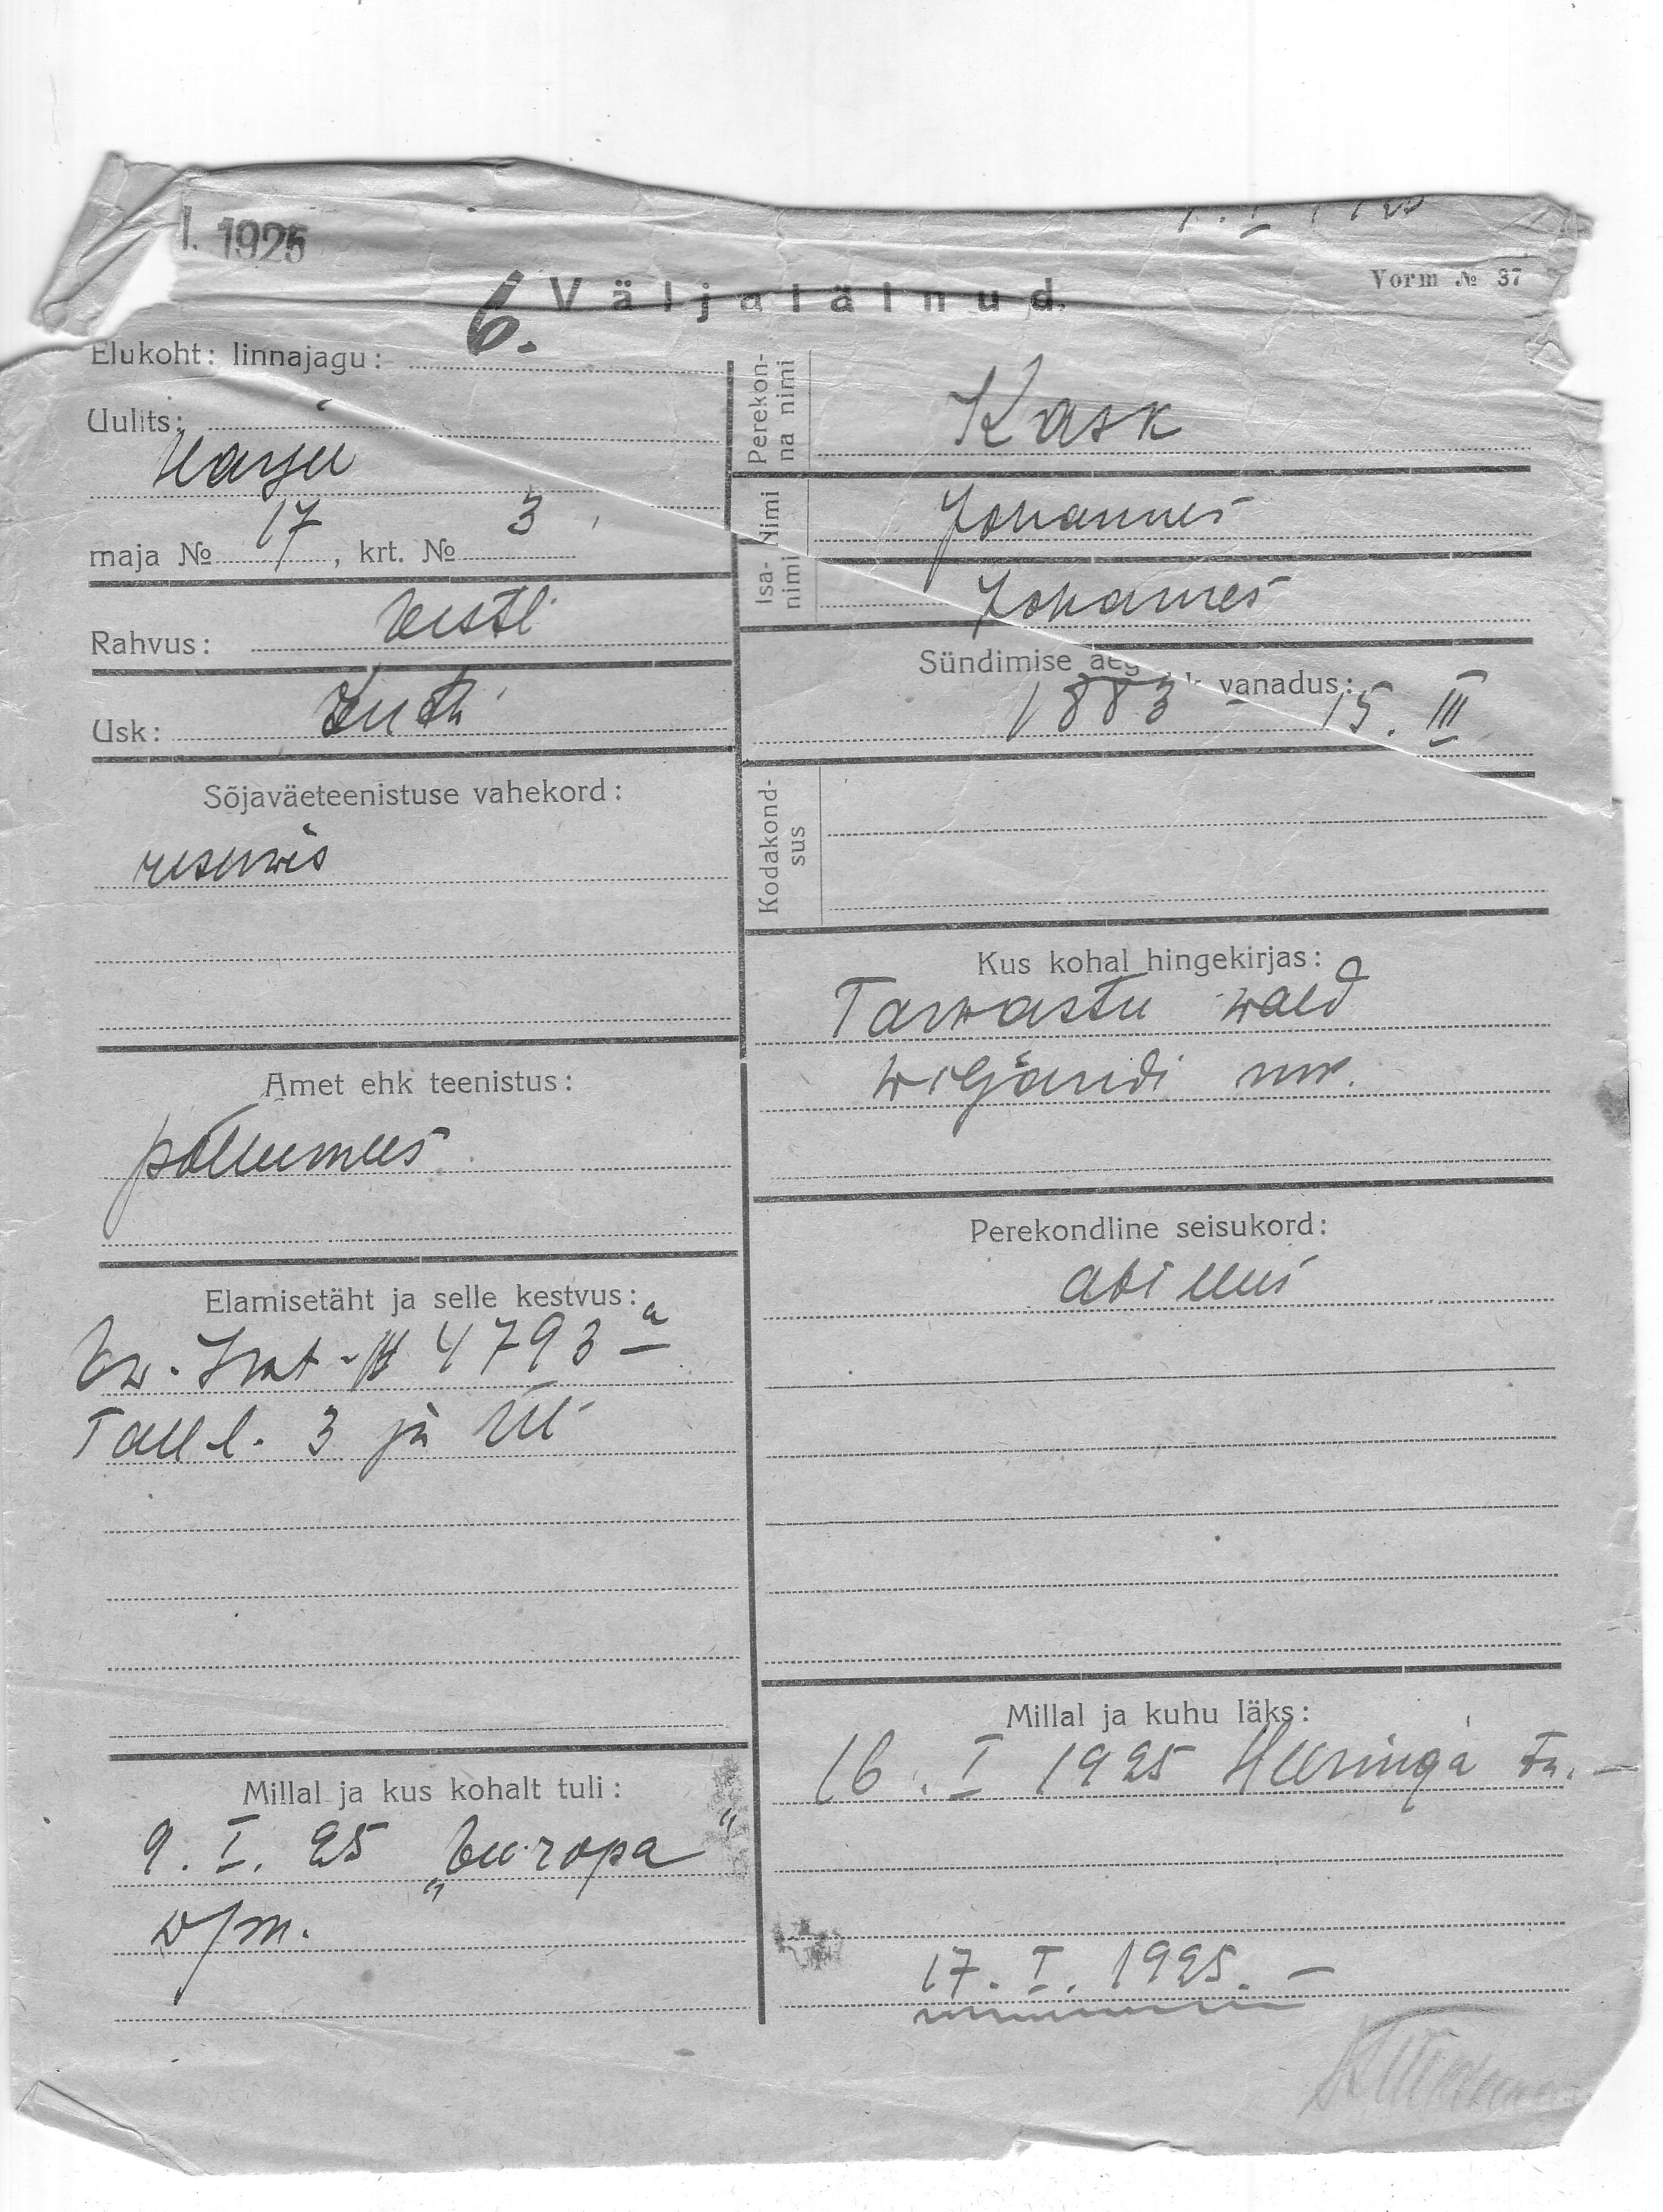 I. 1925
Vorm № 37
6. Väljaläinud.
Elukoht: linnajagu:
Uulits:
Harju
maja № 17, krt. № 3
Rahvus: Eesti
Usk: Luth
Sõjaväeteenistuse vahekord:
reservis
Amet ehk teenistus:
põllumees
Elamisetäht ja selle kestvus:
4793 a
Tall l. 3 ja
Millal ja kus kohalt tuli:
9. I. 25 „Europa"
w/m.
Perekonna nimi
Kask
Nimi
Johannes
Isanimi
Johannes
Sündimise aeg vanadus:
1883 15. III
Kodakondsus
Kus kohal hingekirjas:
Tarwastu wald
Wiljandi mk.
Perekondline seisukord:
abielus
Millal ja kuhu läks:
16. I 1925 Heeringa
17. I. 1925. —